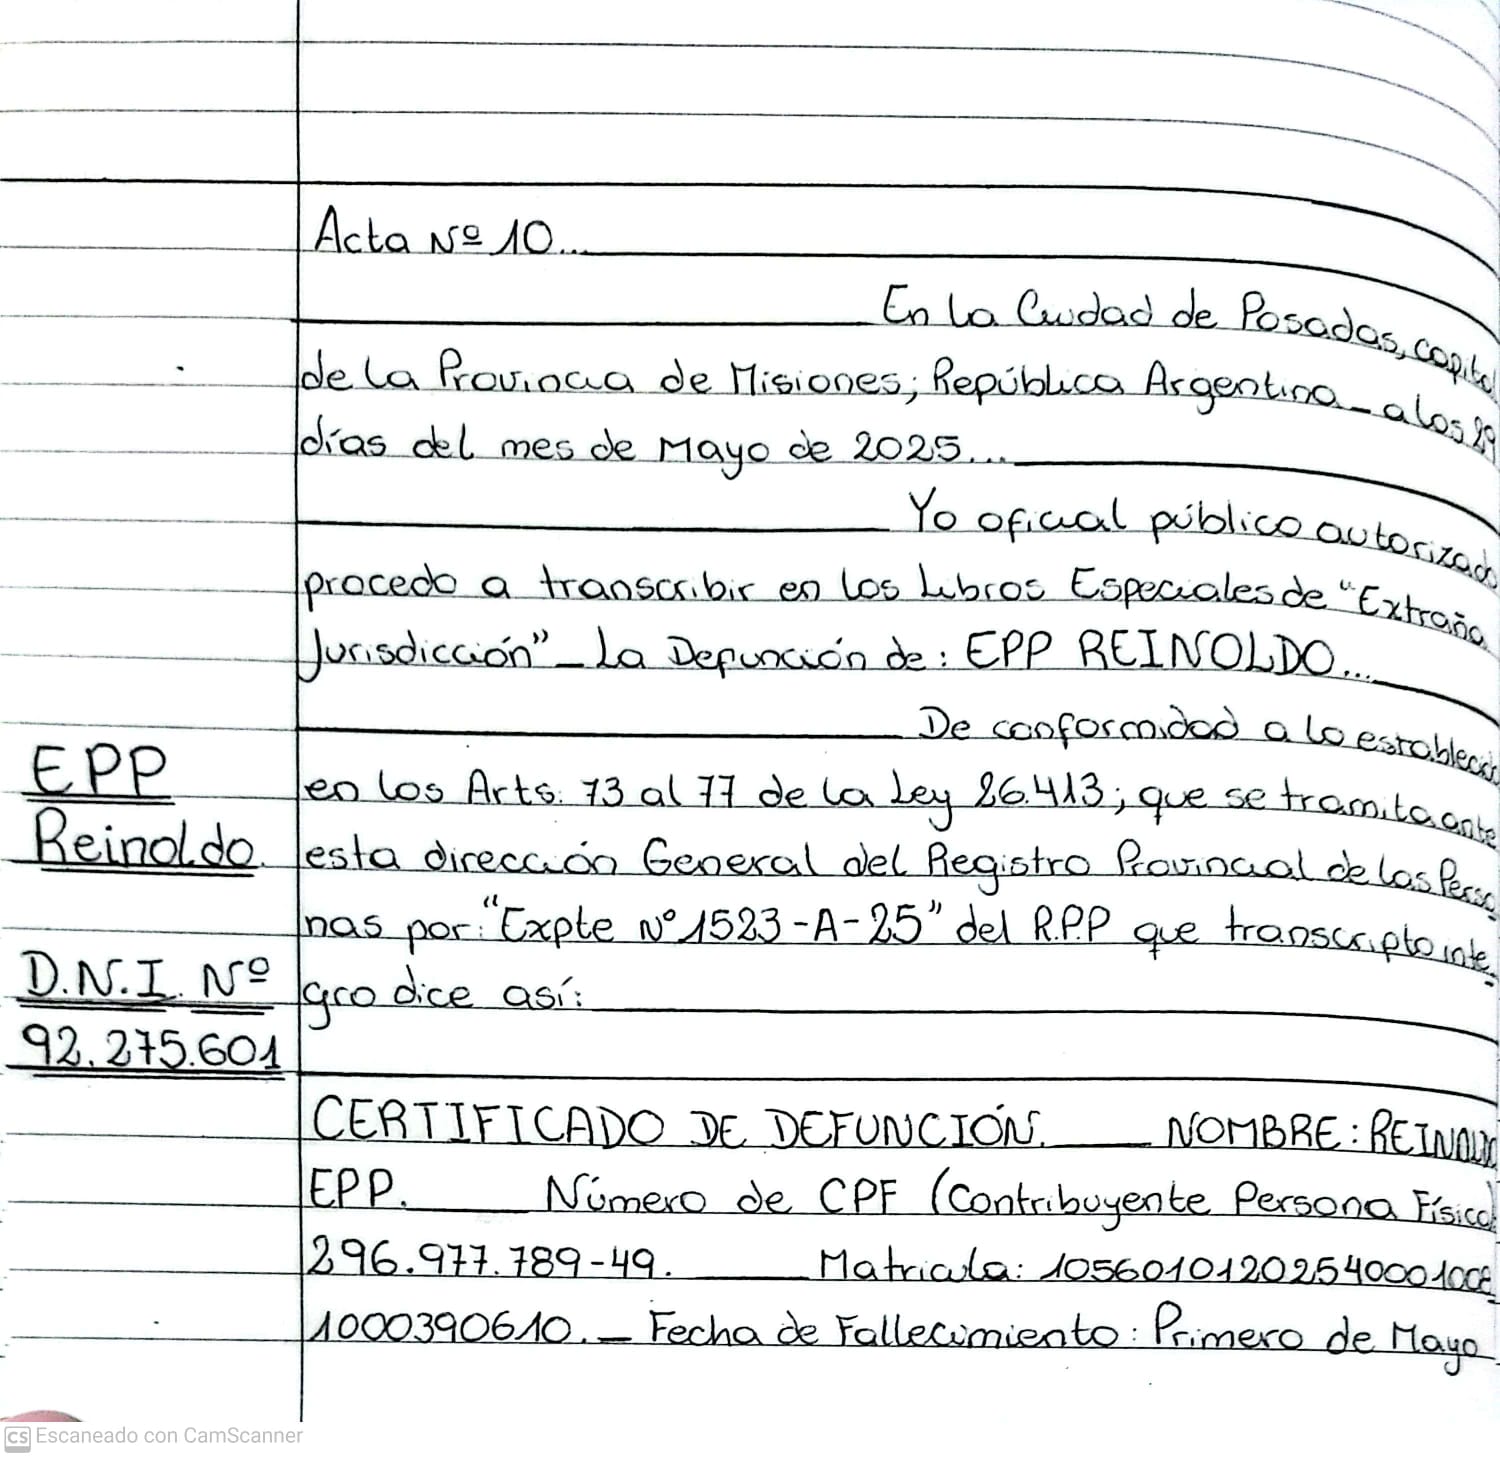 Acta Nº 10...
En la Ciudad de Posadas, capital
de la Provincia de Misiones; República Argentina - a los 29
días del mes de Mayo de 2025...
Yo oficial público autorizado
procedo a transcribir en los Libros Especiales de "Extraña
Jurisdicción" - La Defunción de: EPP REINOLDO...
De conformidad a lo establecido
EPP
en los Arts. 73 al 77 de la Ley 26.413; que se tramita ante
Reinoldo.
esta dirección General del Registro Provincial de las Perso
nas por: "Expte Nº 1523-A-25" del R.P.P que transcripto inte-
D.N.I. Nº
gro dice así:
92.275.601
CERTIFICADO DE DEFUNCIÓN. NOMBRE: REINOLDO
EPP. Número de CPF (Contribuyente Persona Física)
296.977.789-49. Matricula:
1000390610. - Fecha de Fallecimiento: Primero de Mayo
CS Escaneado con CamScanner